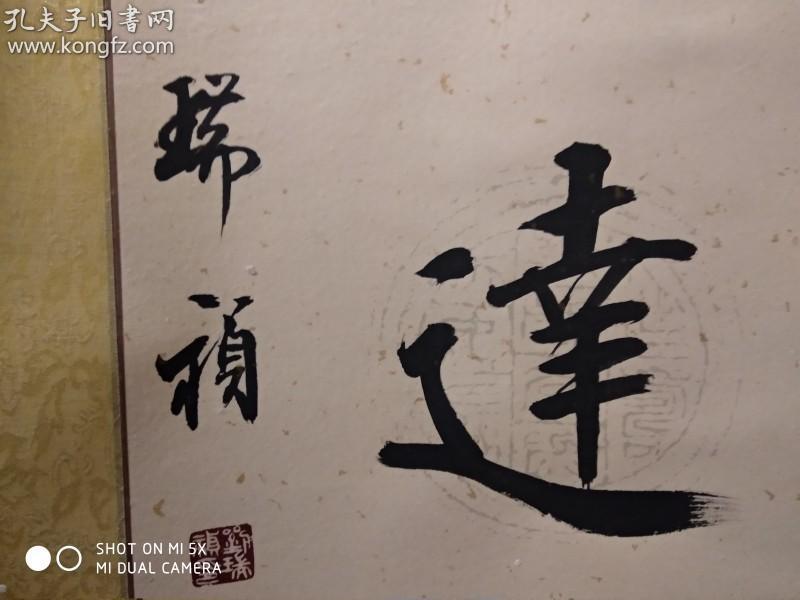 孔夫子旧书网
www.kongfz.com
達
瑞禎
劉瑞
禎印
SHOT ON MI 5X
MI DUAL CAMERA